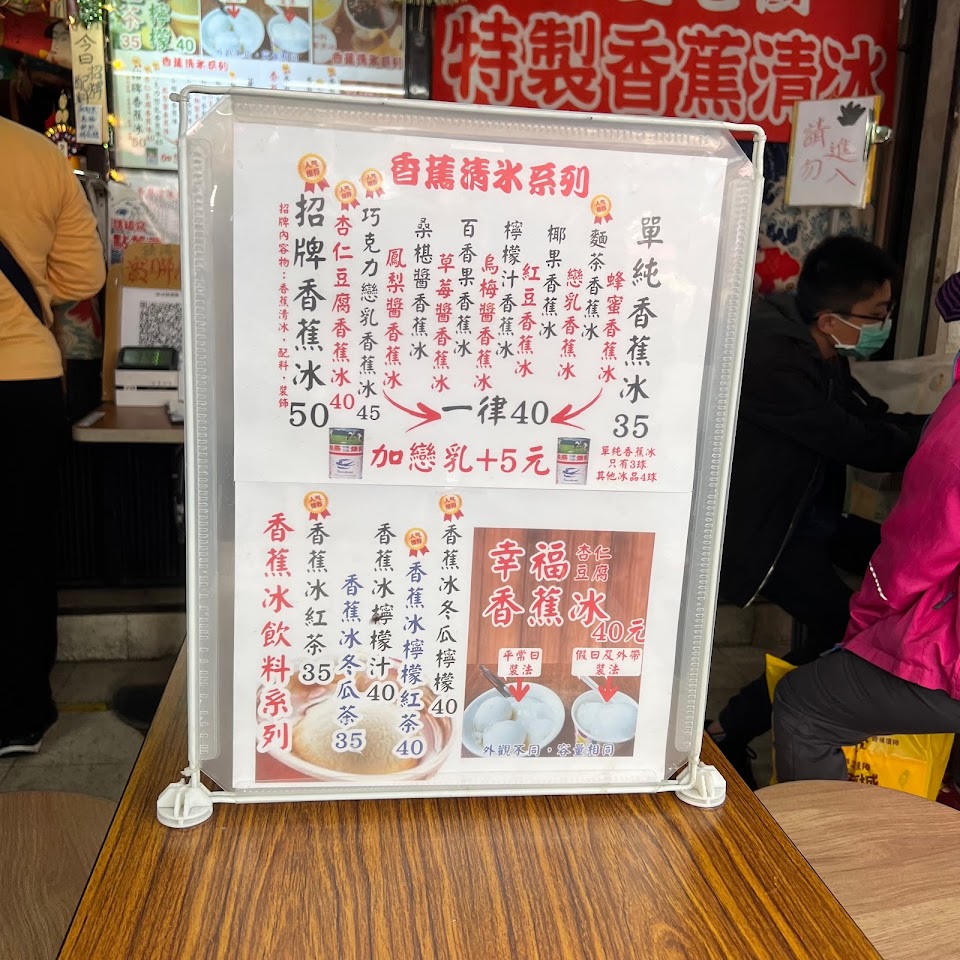 特製香蕉清冰
請勿
進入
今日
35
檸檬
40
香蕉清冰系列
50
香蕉清冰系列
人氣
單純香蕉冰
35
蜂蜜香蕉冰
麵茶香蕉冰
戀乳香蕉冰
椰果香蕉冰
紅豆香蕉冰
檸檬汁香蕉冰
烏梅醬香蕉冰
百香果香蕉冰
草莓醬香蕉冰
桑椹醬香蕉冰
鳳梨醬香蕉冰
一律40
巧克力戀乳香蕉冰
45
杏仁豆腐香蕉冰
40
招牌香蕉冰
50
招牌內容物：香蕉清冰，配料，裝飾
加戀乳+5元
單純香蕉冰
只有3球
其他冰品4球
香蕉冰飲料系列
香蕉冰紅茶
35
香蕉冰冬瓜茶
35
香蕉冰檸檬汁
40
香蕉冰檸檬紅茶
40
香蕉冰冬瓜檸檬
40
幸福杏仁豆腐
香蕉冰
40元
平常日
裝法
假日及外帶
裝法
外觀不同，容量相同